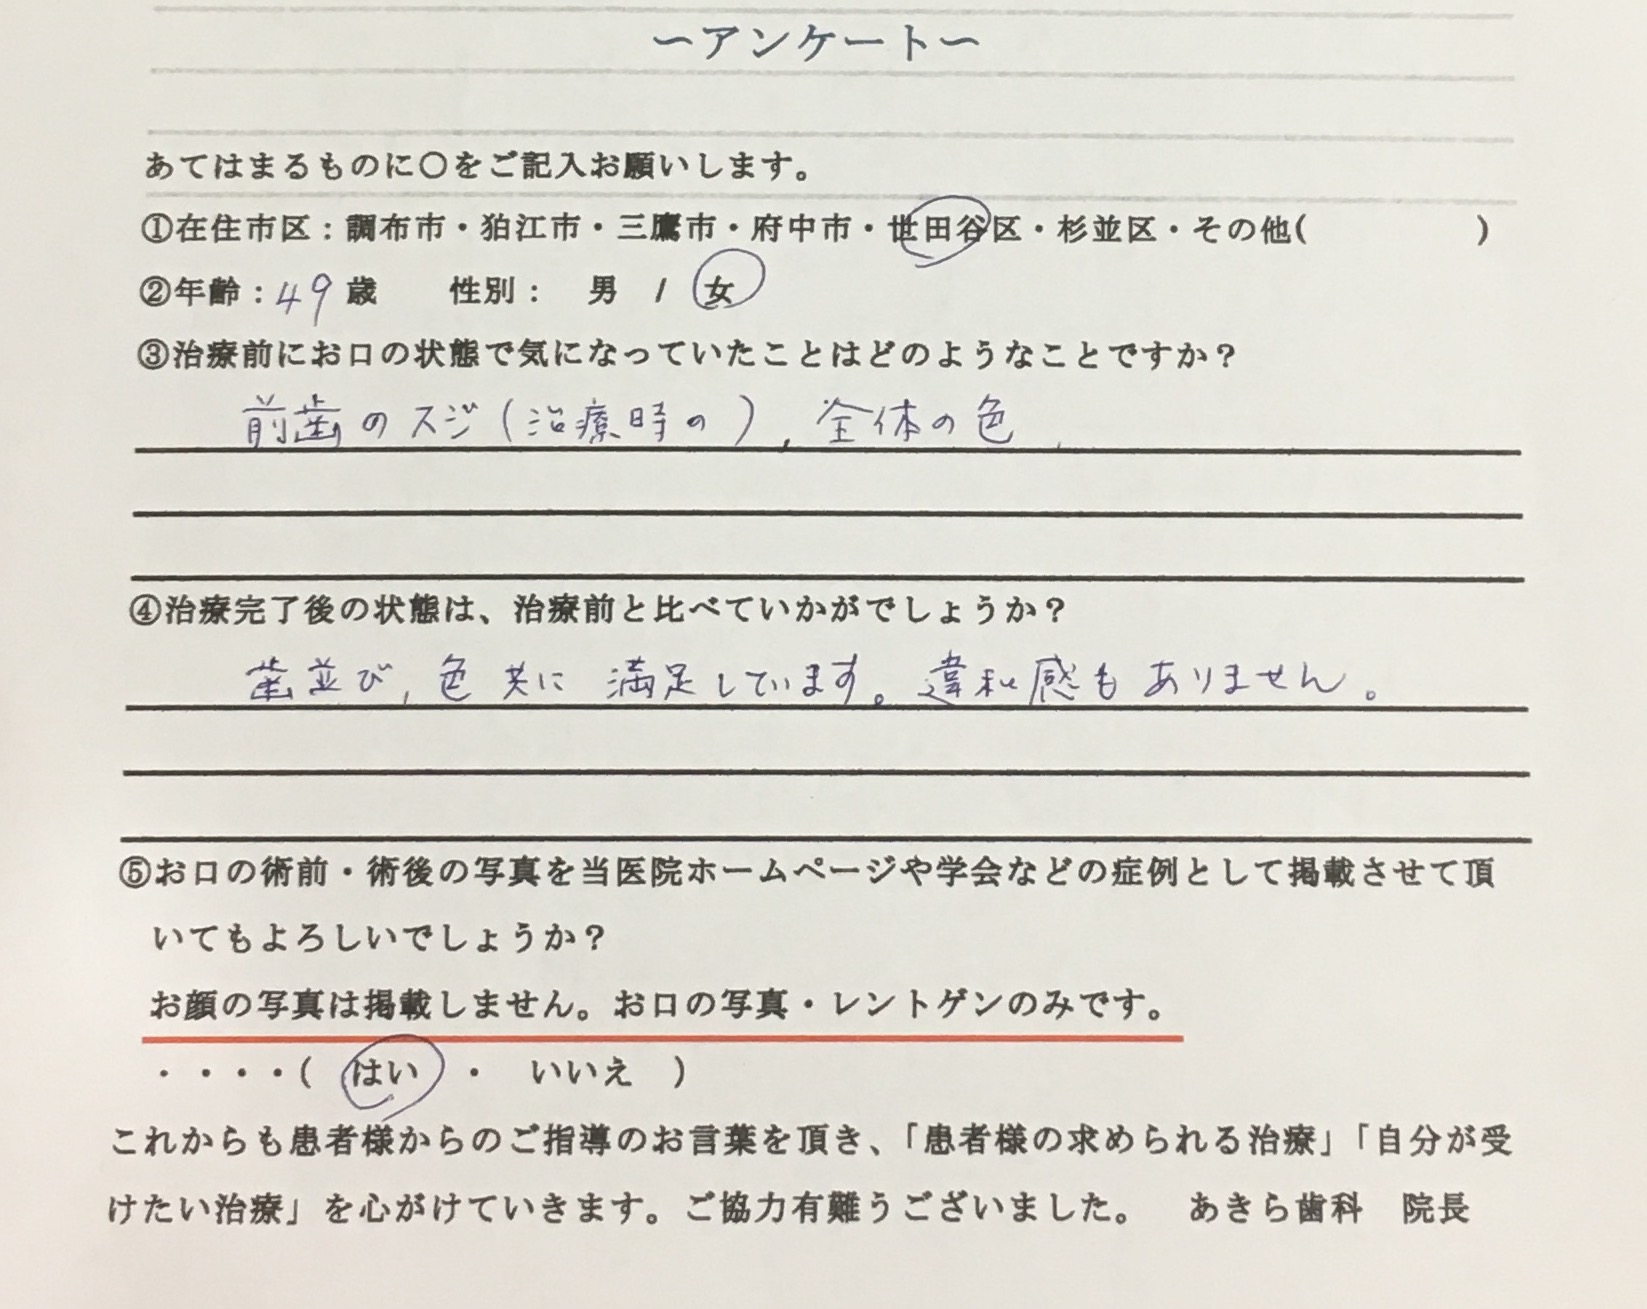 ～アンケート～
あてはまるものに〇をご記入お願いします。
①在住市区：調布市・狛江市・三鷹市・府中市・世田谷区・杉並区・その他(　　　　　)
②年齢：49歳　　性別：　男　/　女
③治療前にお口の状態で気になっていたことはどのようなことですか？
前歯のスジ(治療時の)、全体の色
④治療完了後の状態は、治療前と比べていかがでしょうか？
歯並び、色共に満足しています。違和感もありません。
⑤お口の術前・術後の写真を当医院ホームページや学会などの症例として掲載させて頂
いてもよろしいでしょうか？
お顔の写真は掲載しません。お口の写真・レントゲンのみです。
・・・・(　はい　・　いいえ　)
これからも患者様からのご指導のお言葉を頂き、「患者様の求められる治療」「自分が受
けたい治療」を心がけていきます。ご協力有難うございました。　あきら歯科　院長